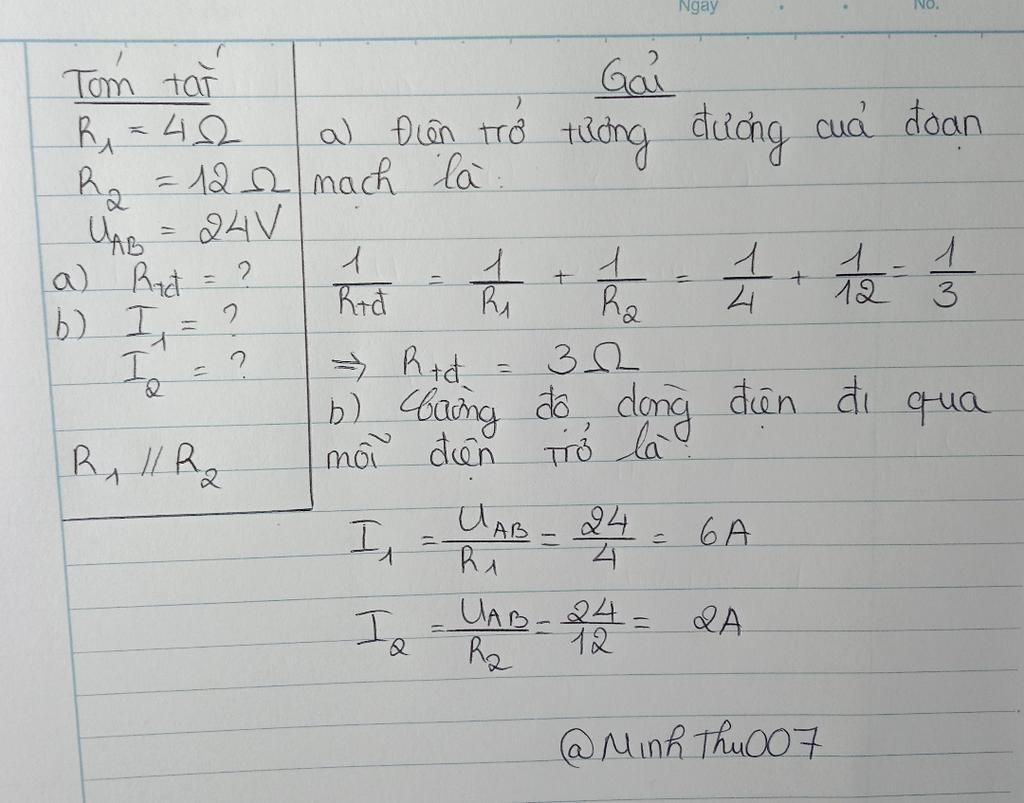 Ngày
No.
Tóm tắt
R1 = 4Ω
R2 = 12Ω
UAB = 24V
a) Rtđ = ?
b) I1 = ?
I2 = ?
R1 // R2
Gải
a) Điện trở tương đương cuả đoạn
mạch là:
1/Rtđ = 1/R1 + 1/R2 = 1/4 + 1/12 = 1/3
⇒ Rtđ = 3Ω
b) Cường độ dòng điện đi qua
mỗi điện trở là:
I1 = UAB/R1 = 24/4 = 6A
I2 = UAB/R2 = 24/12 = 2A
@MinhThu007